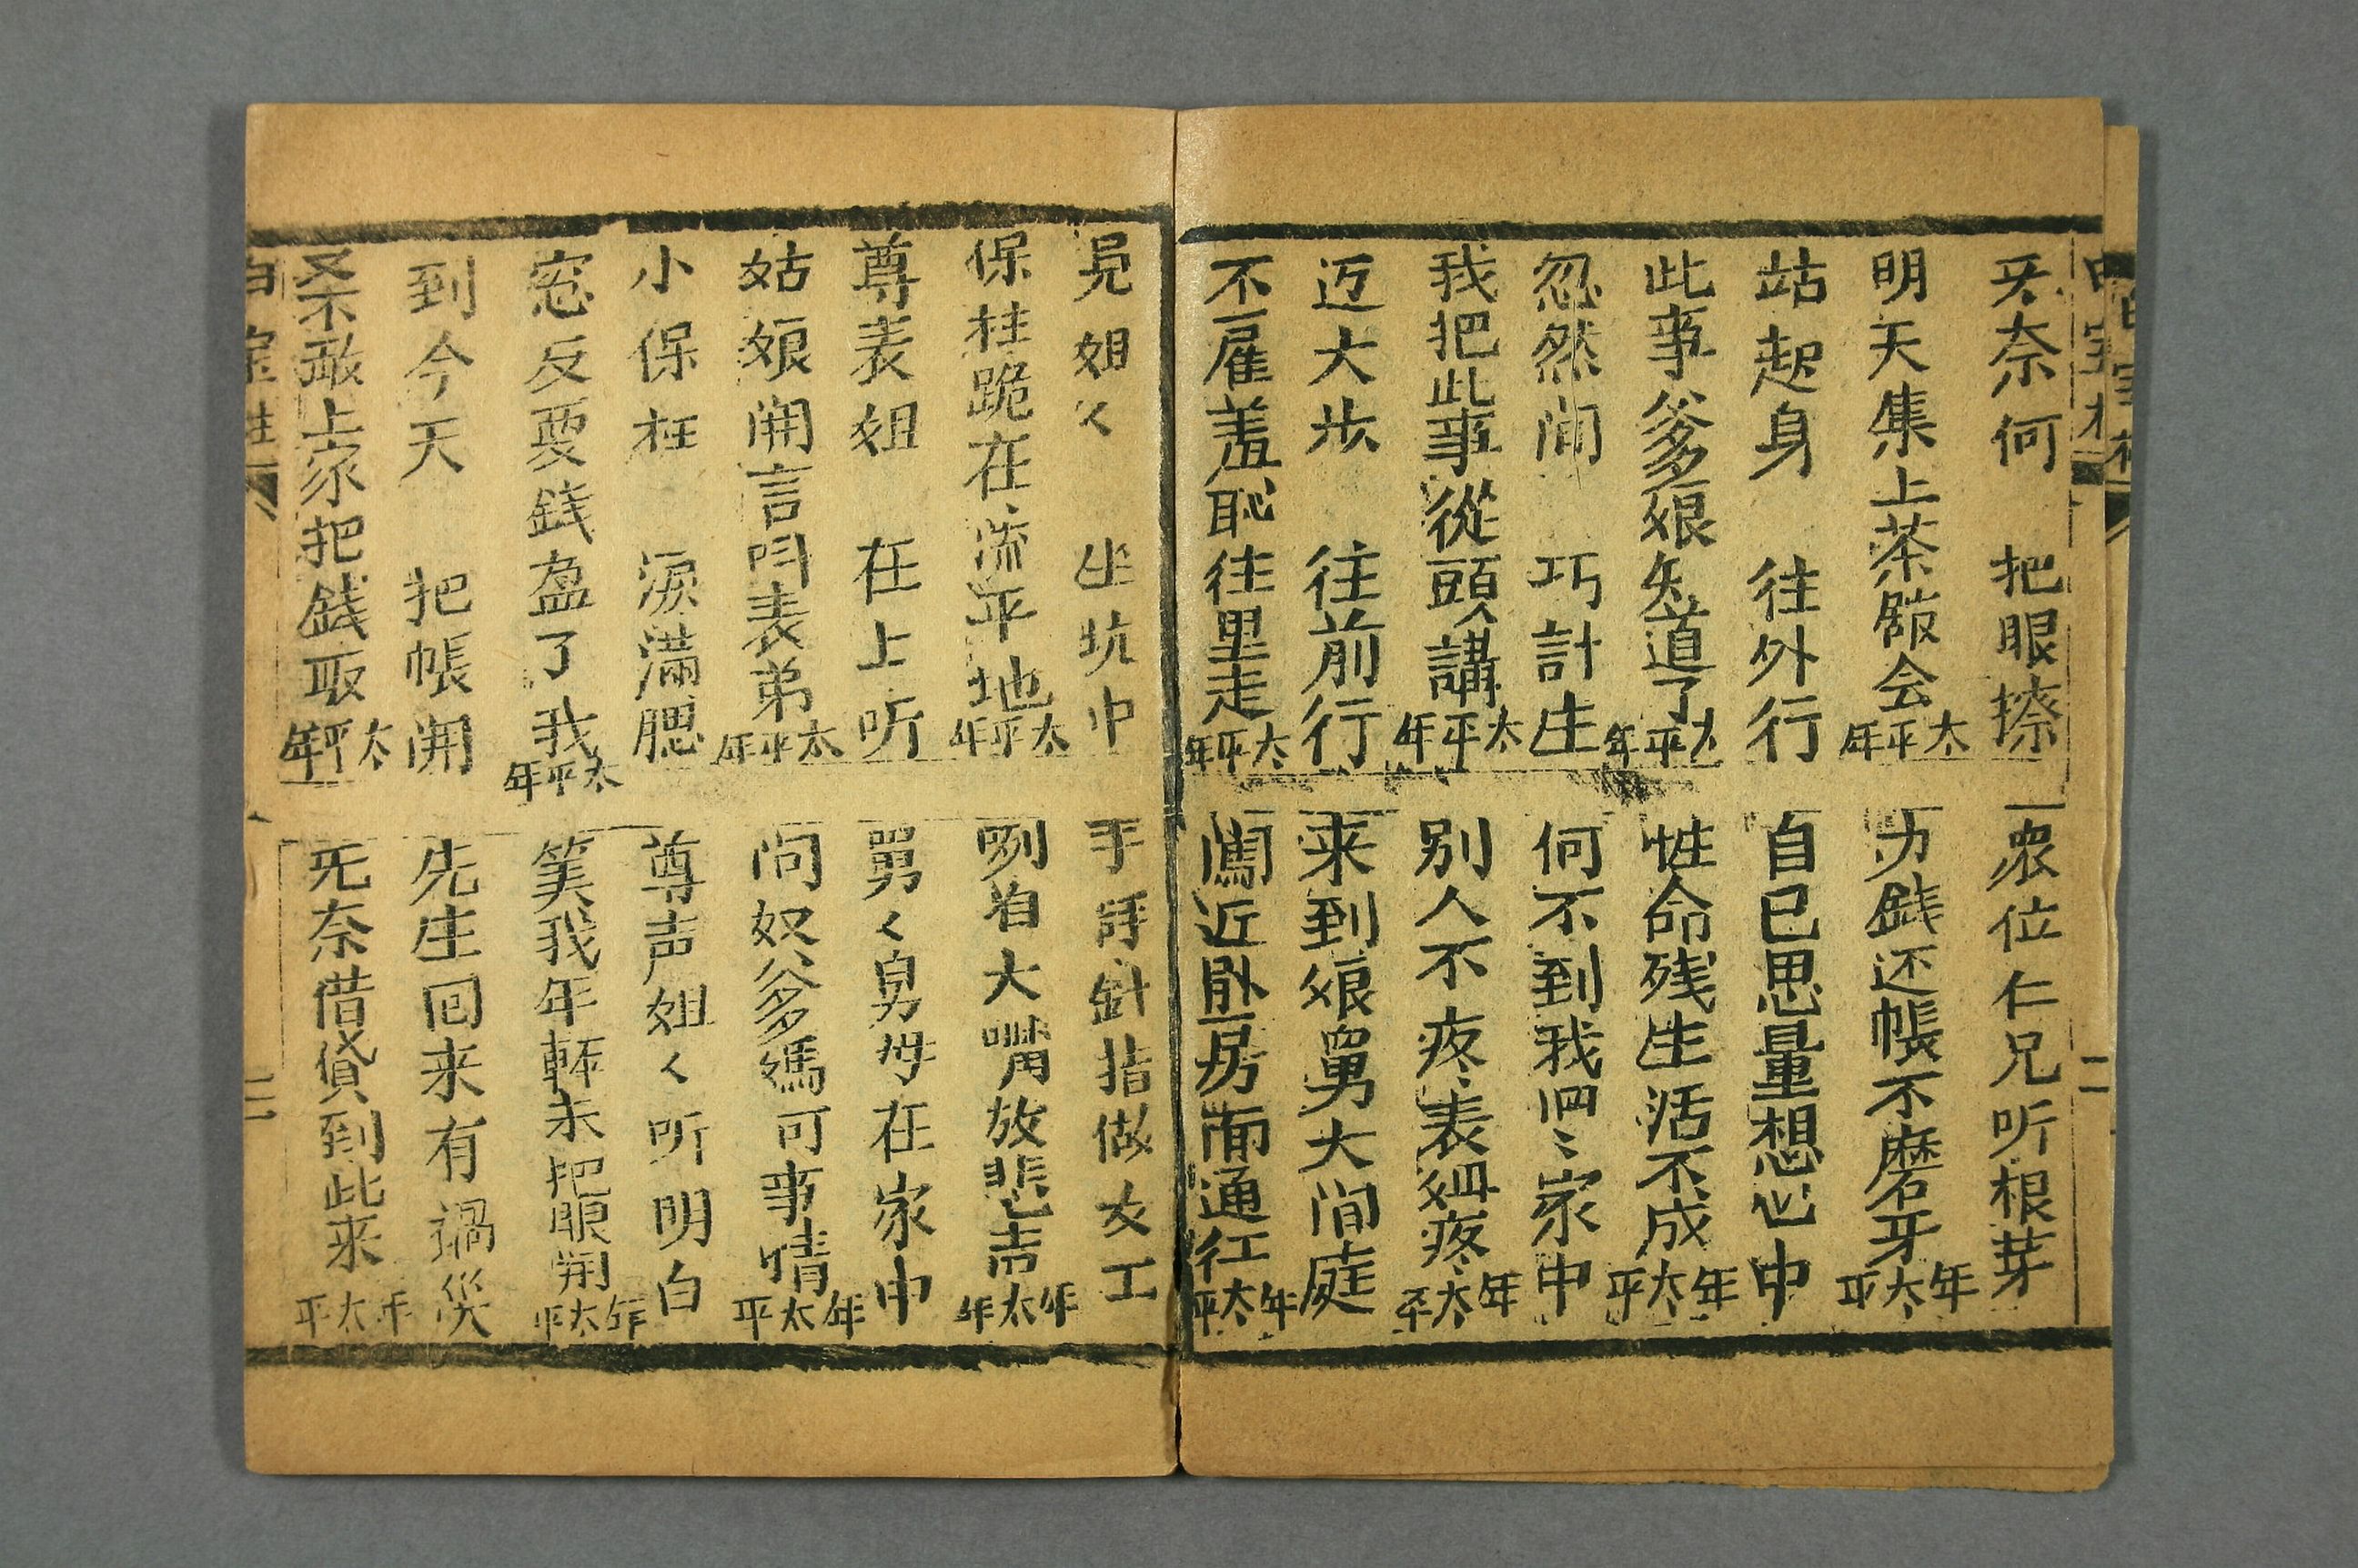 无奈何　把眼擦
衆位仁兄听根芽
明天集上茶館会太平年
力錢还帳不磨牙年太平
站起身　往外行
自己思量想心中
此事爹娘知道了太平年
性命残生活不成年太平
忽然间　巧計生
何不到我四〻家中
我把此事從頭講太平年
别人不疼表姐疼年太平
迈大步　往前行
来到娘舅大间庭
不雇羞恥往里走太平年
闖近卧房面通江年太平
見姐〻　坐坑中
手拿針指做女工
保柱跪在流平地太平年
咧着大嘴放悲声年太平
尊表姐　在上听
舅〻舅母在家中
姑娘開言問表弟太平年
问奴爹媽可事情年太平
小保柱　淚滿腮
尊声姐〻听明白
窓反要錢盈了我太平年
笑我年輕未把眼開年太平
到今天　把帳開
先生回来有禍災
不敢上家把錢取太平年
无奈借貸到此来年太平
二
三